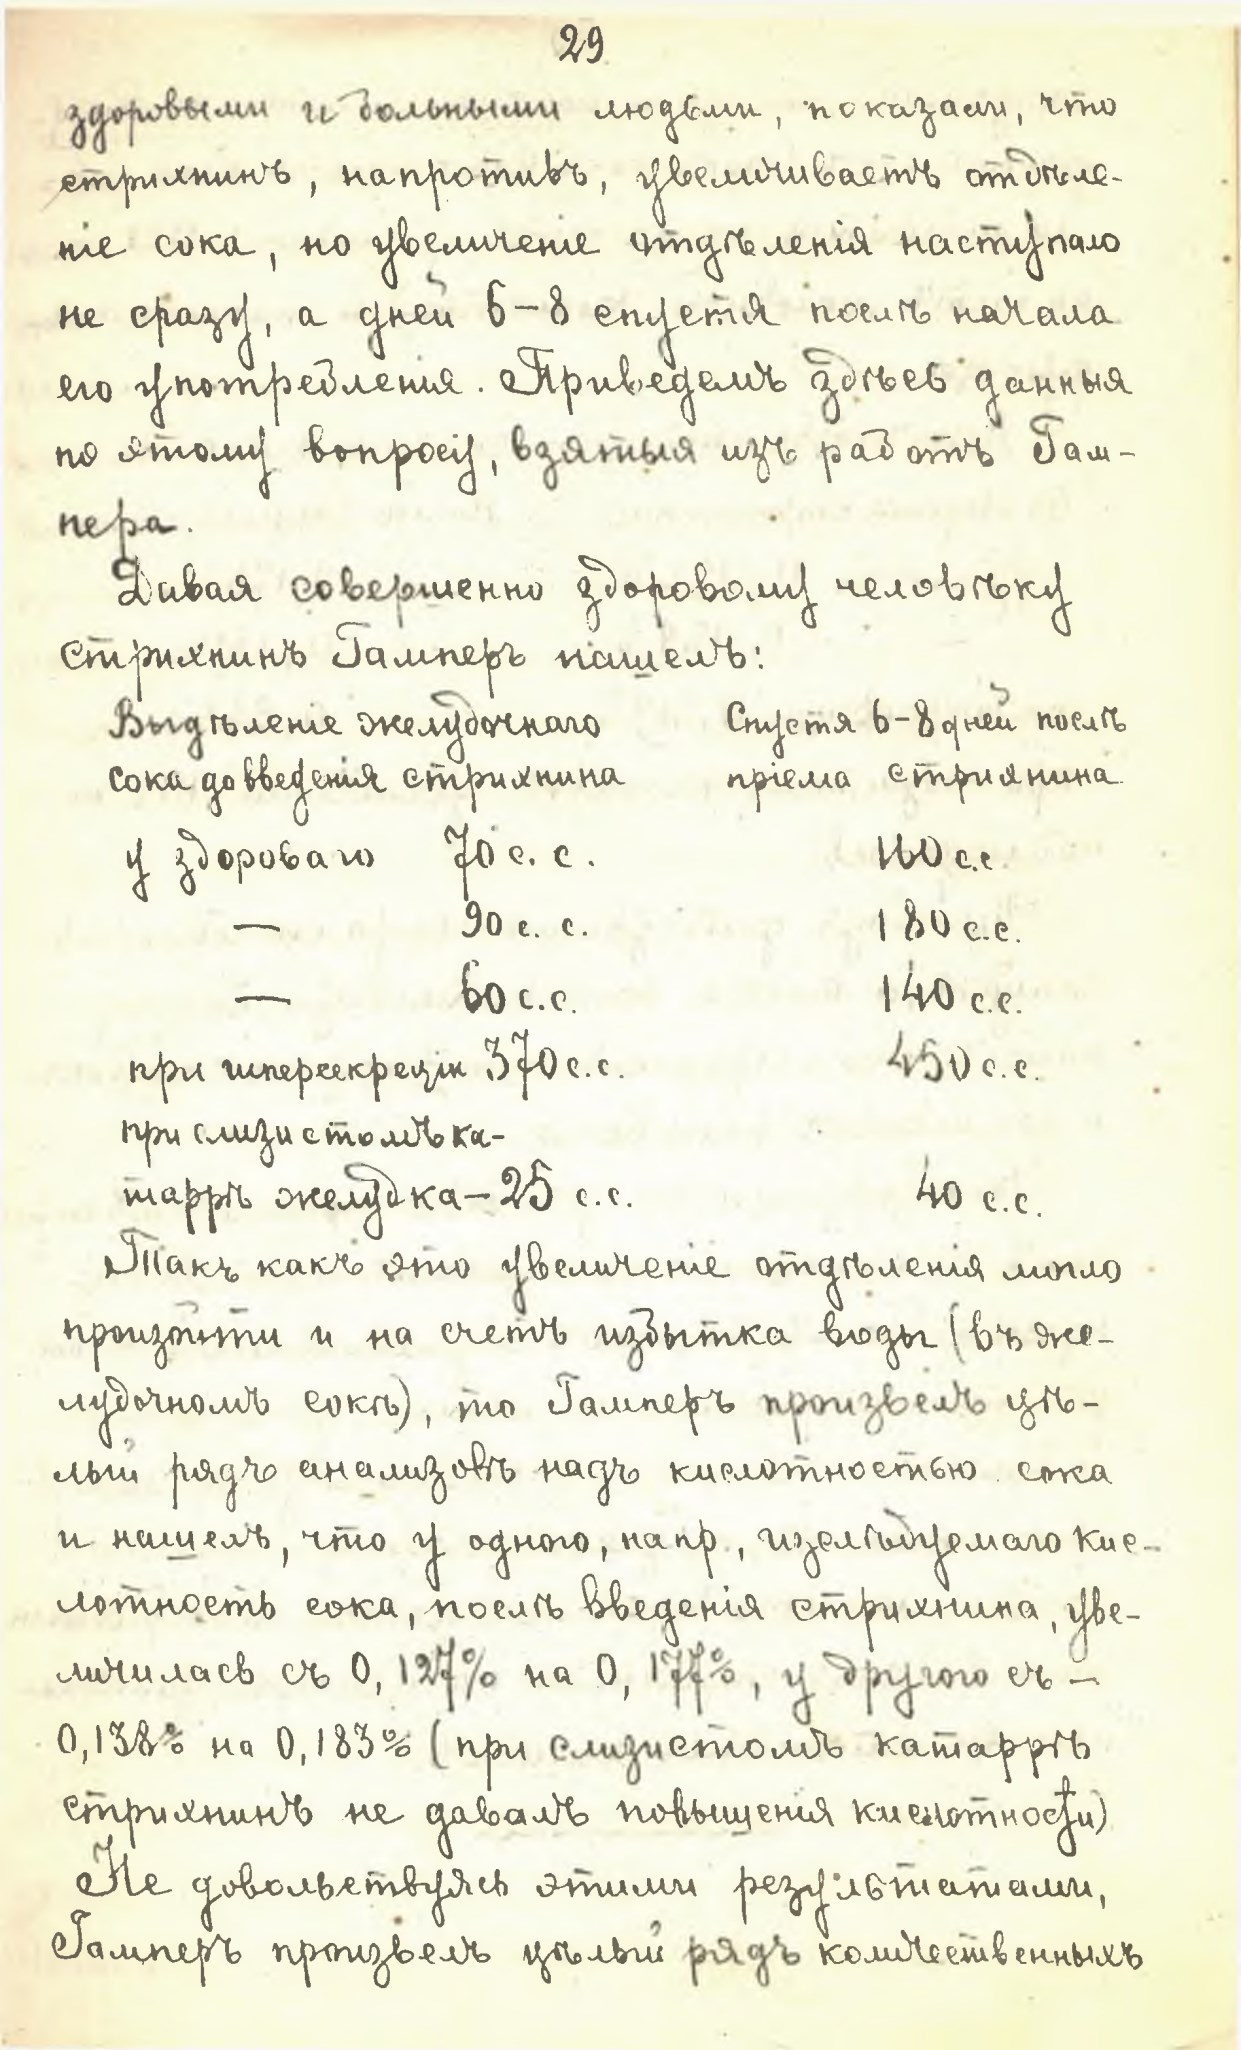 29
здоровыми и больными людьми, показали, что
стрихнинъ, напротивъ, увеличиваетъ отдѣле-
ніе сока, но увеличеніе отдѣленія наступало
не сразу, а дней 6-8 спустя послѣ начала
его употребленія. Приведемъ здѣсь данныя
по этому вопросу, взятыя изъ работъ Гам-
пера.
Давая совершенно здоровому человѣку
стрихнинъ Гамперъ нашелъ:
Выдѣленіе желудочнаго Спустя 6-8 дней послѣ
сока до введенія стрихнина пріема стрихнина
у здороваго 70 с. с. 160 с.с.
— 90 с. с. 180 с.с.
— 60 с.с. 140 с.с.
при гиперсекреціи 370 с.с. 450 с.с.
при слизистомъ ка-
таррѣ желудка - 25 с.с. 40 с.с.
Такъ какъ это увеличеніе отдѣленія могло
произойти и на счетъ избытка воды (въ же-
лудочномъ сокѣ), то Гамперъ произвелъ цѣ-
лый рядъ анализовъ надъ кислотностью сока
и нашелъ, что у одного, напр., изслѣдуемаго кис-
лотность сока, послѣ введенія стрихнина, уве-
личилась съ 0,127% на 0,177%, у другого съ —
0,138% на 0,183% (при слизистомъ катаррѣ
стрихнинъ не давалъ повышенія кислотности)
Не довольствуясь этими результатами,
Гамперъ произвелъ цѣлый рядъ количественныхъ